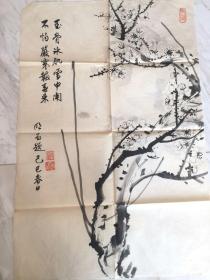 玉骨冰肌雪中開
不怕嚴寒報春來
題己巳春日